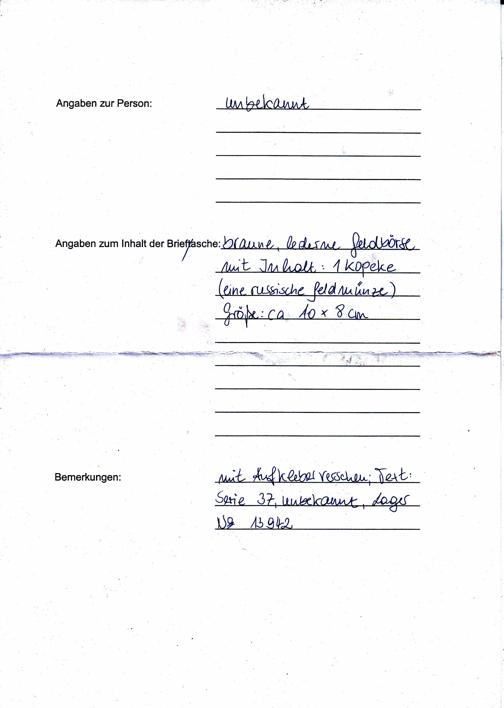 Angaben zur Person: unbekannt
Angaben zum Inhalt der Brieftasche: braune, lederne Geldbörse
mit Inhalt: 1 Kopeke
(eine russische Geldmünze)
Größe: ca 10 x 8 cm
Bemerkungen: mit Aufkleber versehen; Text:
Serie 37, unbekannt, Lager
No 13942